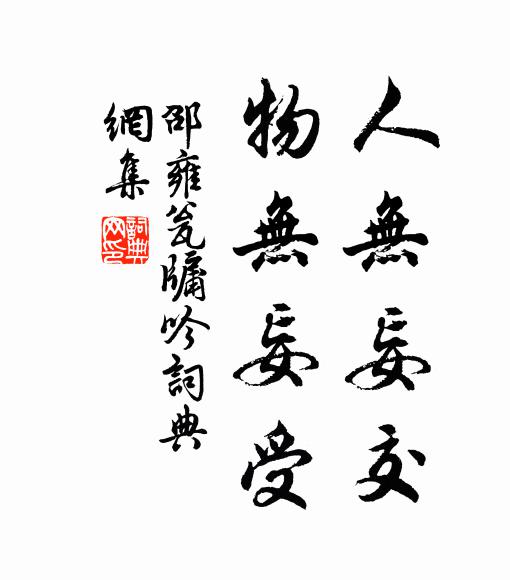 人無妄交
物無妄受
邵雍瓮牖吟詞典
網集
詞典
网印